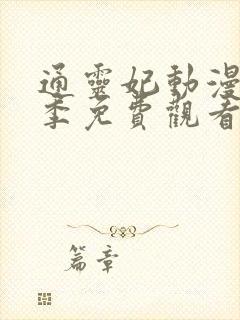 通靈妃動漫
季免費觀看
篇章